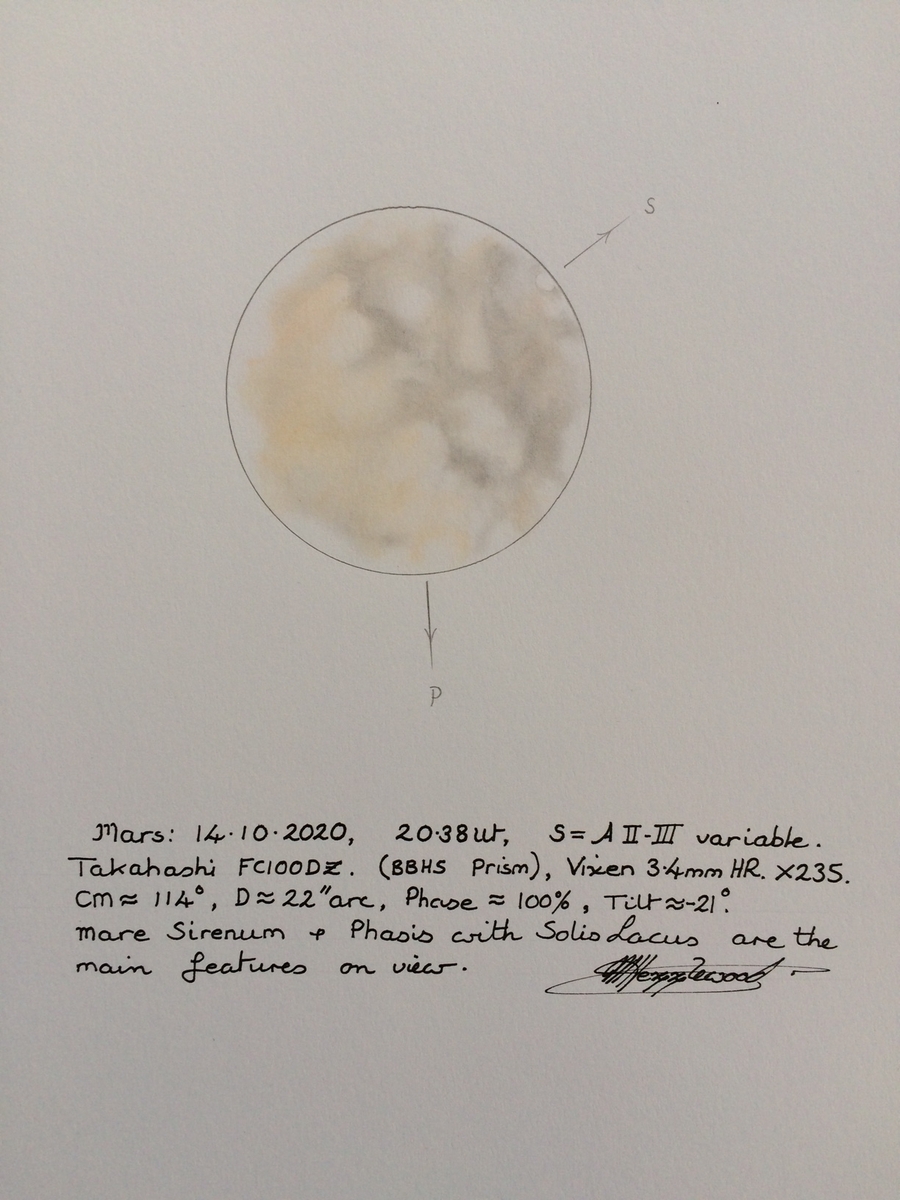 S
P
Mars: 14·10·2020, 20·38ut, S= A II-III variable.
Takahashi FC100DZ. (BBHS Prism), Vixen 3·4mm HR. X235.
CM≈ 114°, D≈22"arc, Phase ≈ 100%, Tilt≈-21°.
Mare Sirenum + Phasis with Solis Lacus are the
main features on view.